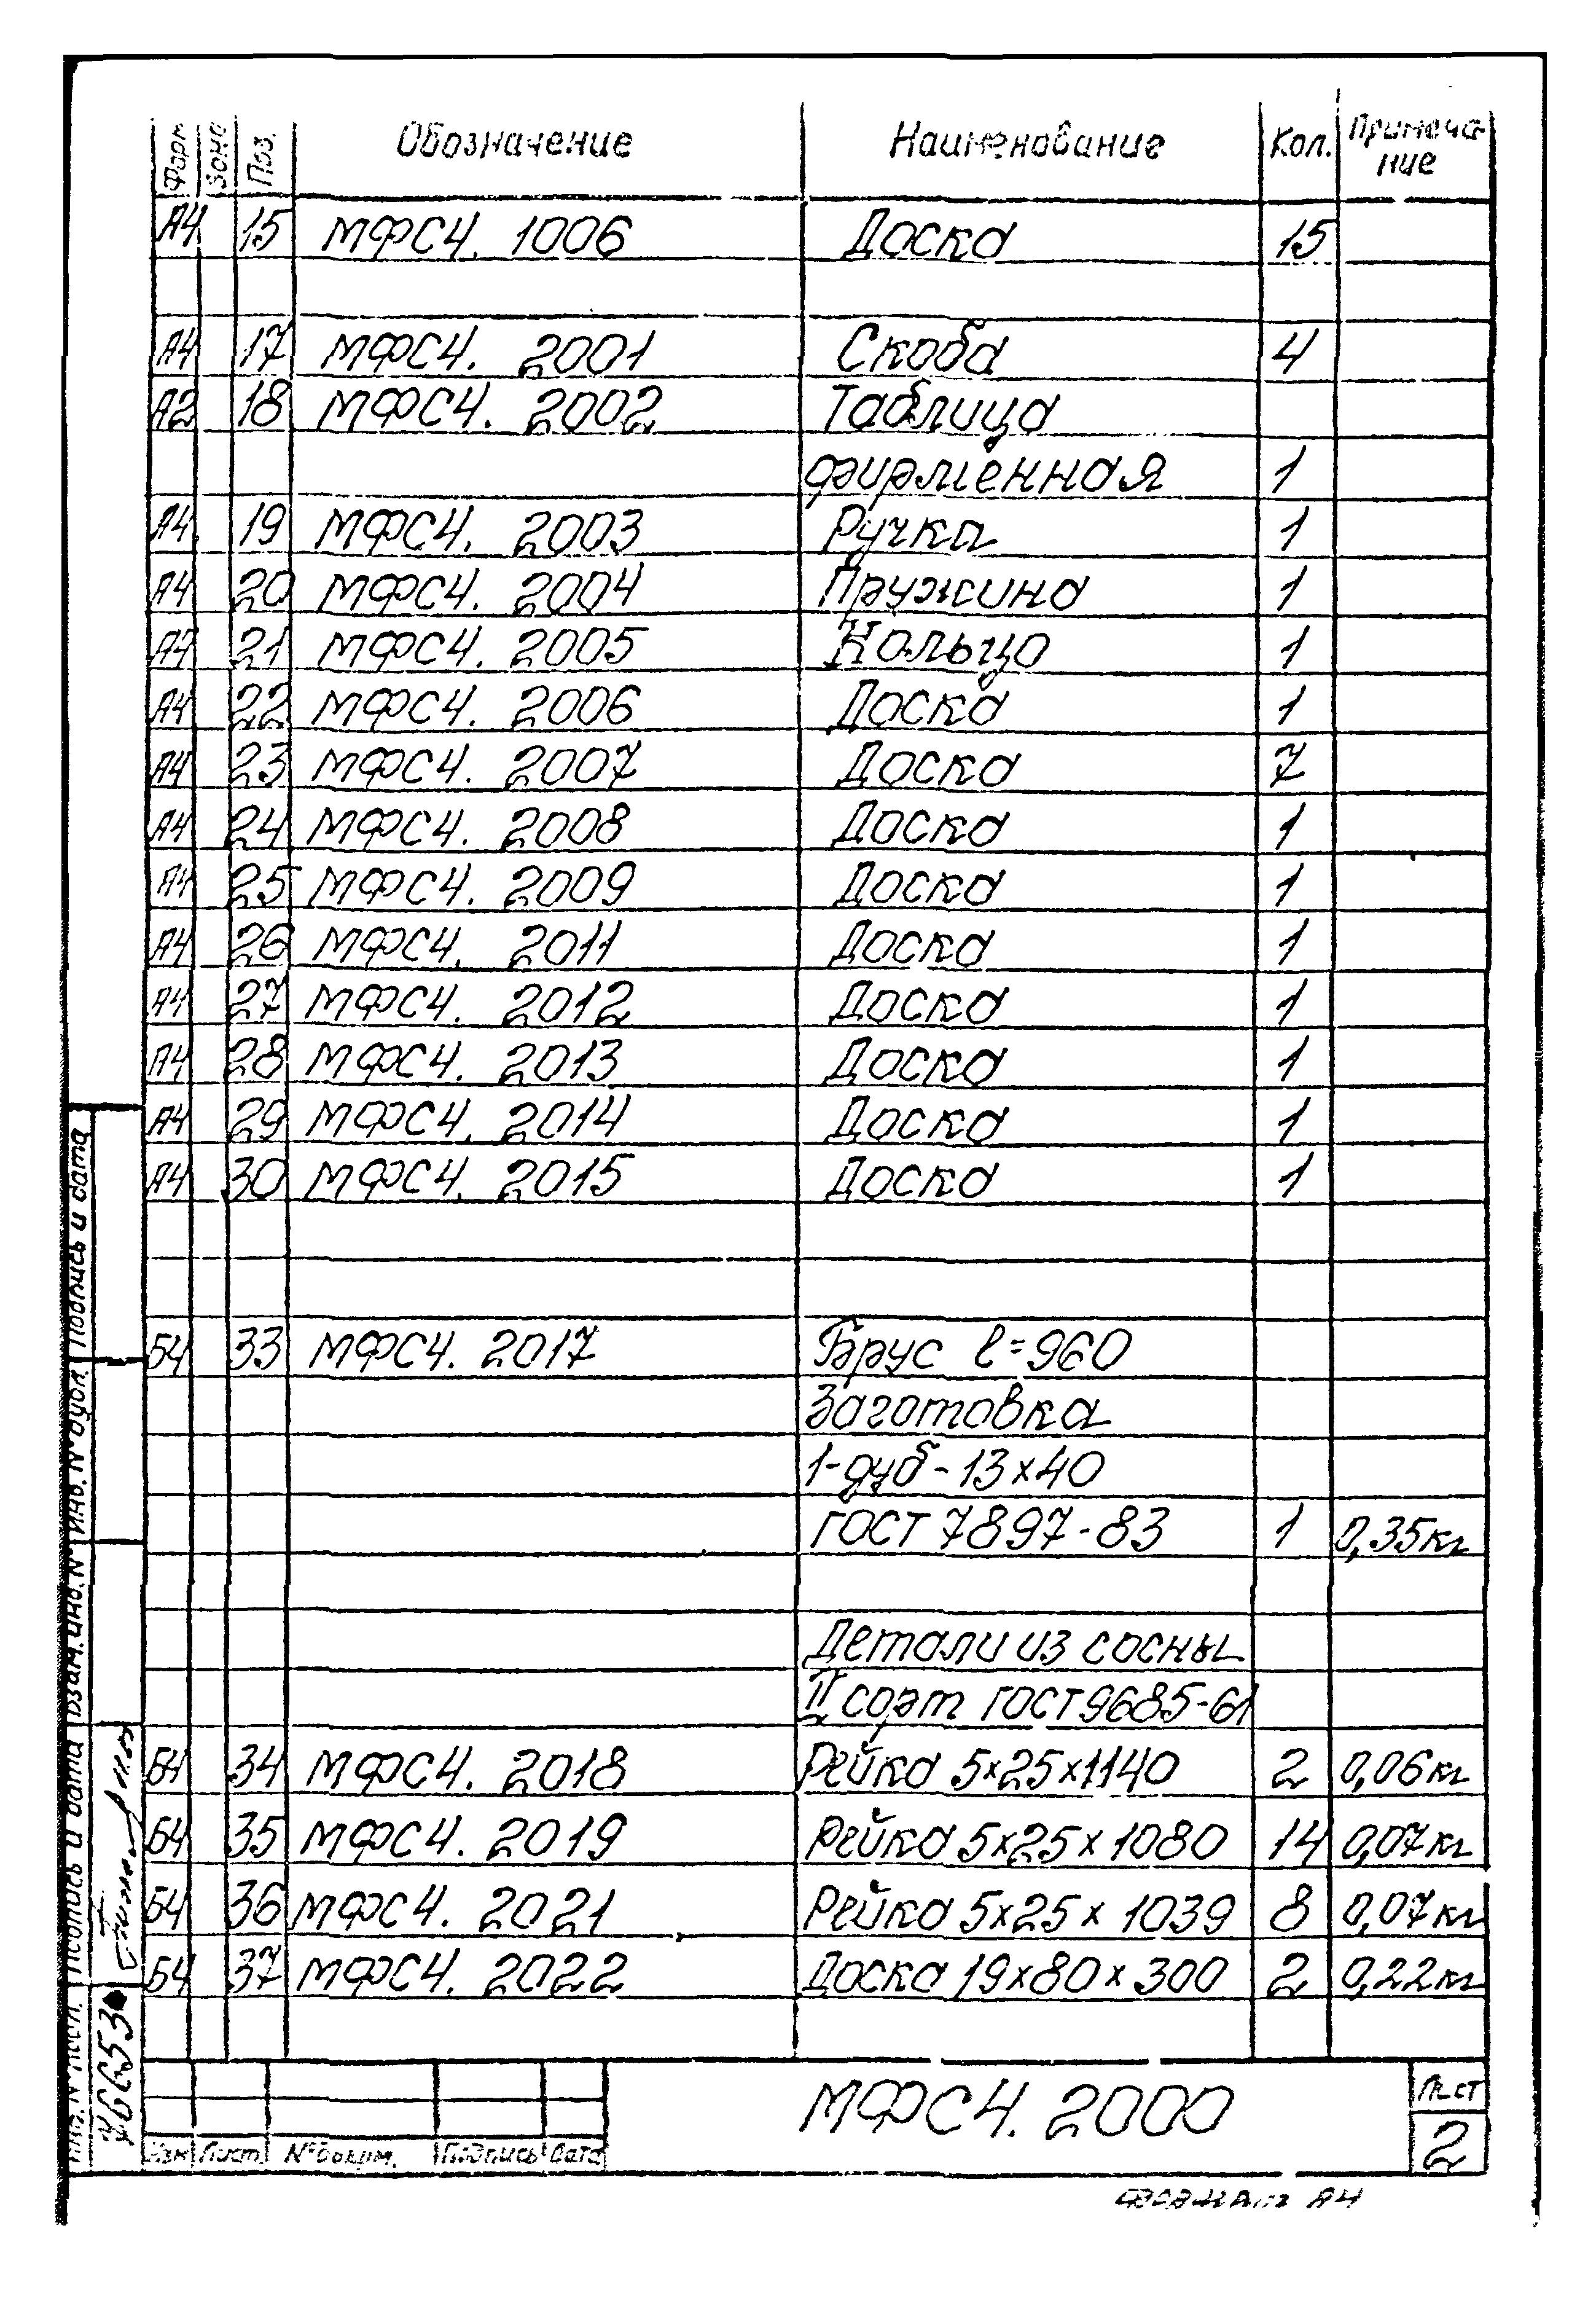 Форм Зона Поз. Обозначение Наименование Кол. Примеча-
ние
А4 15 МФС4. 1006 Доска 15
А4 17 МФС4. 2001 Скоба 4
А2 18 МФС4. 2002 Таблица
фирменная 1
А4 19 МФС4. 2003 Ручка 1
А4 20 МФС4. 2004 Пружина 1
А4 21 МФС4. 2005 Кольцо 1
А4 22 МФС4. 2006 Доска 1
А4 23 МФС4. 2007 Доска 7
А4 24 МФС4. 2008 Доска 1
А4 25 МФС4. 2009 Доска 1
А4 26 МФС4. 2011 Доска 1
А4 27 МФС4. 2012 Доска 1
А4 28 МФС4. 2013 Доска 1
А4 29 МФС4. 2014 Доска 1
А4 30 МФС4. 2015 Доска 1
Б4 33 МФС4. 2017 Брус l=960
Заготовка
1-дуб-13×40
ГОСТ 7897-83 1 0,35кг
Детали из сосны
II сорт ГОСТ 9685-61
Б4 34 МФС4. 2018 Рейка 5×25×1140 2 0,06кг
Б4 35 МФС4. 2019 Рейка 5×25×1080 14 0,07кг
Б4 36 МФС4. 2021 Рейка 5×25×1039 8 0,07кг
Б4 37 МФС4. 2022 Доска 19×80×300 2 0,22кг
МФС4. 2000
Лист
2
Изм Лист № докум. Подпись Дата
Формат А4
Подпись и дата
Инв. № дубл.
Взам. инв. №
Подпись и дата
Инв. № подл.